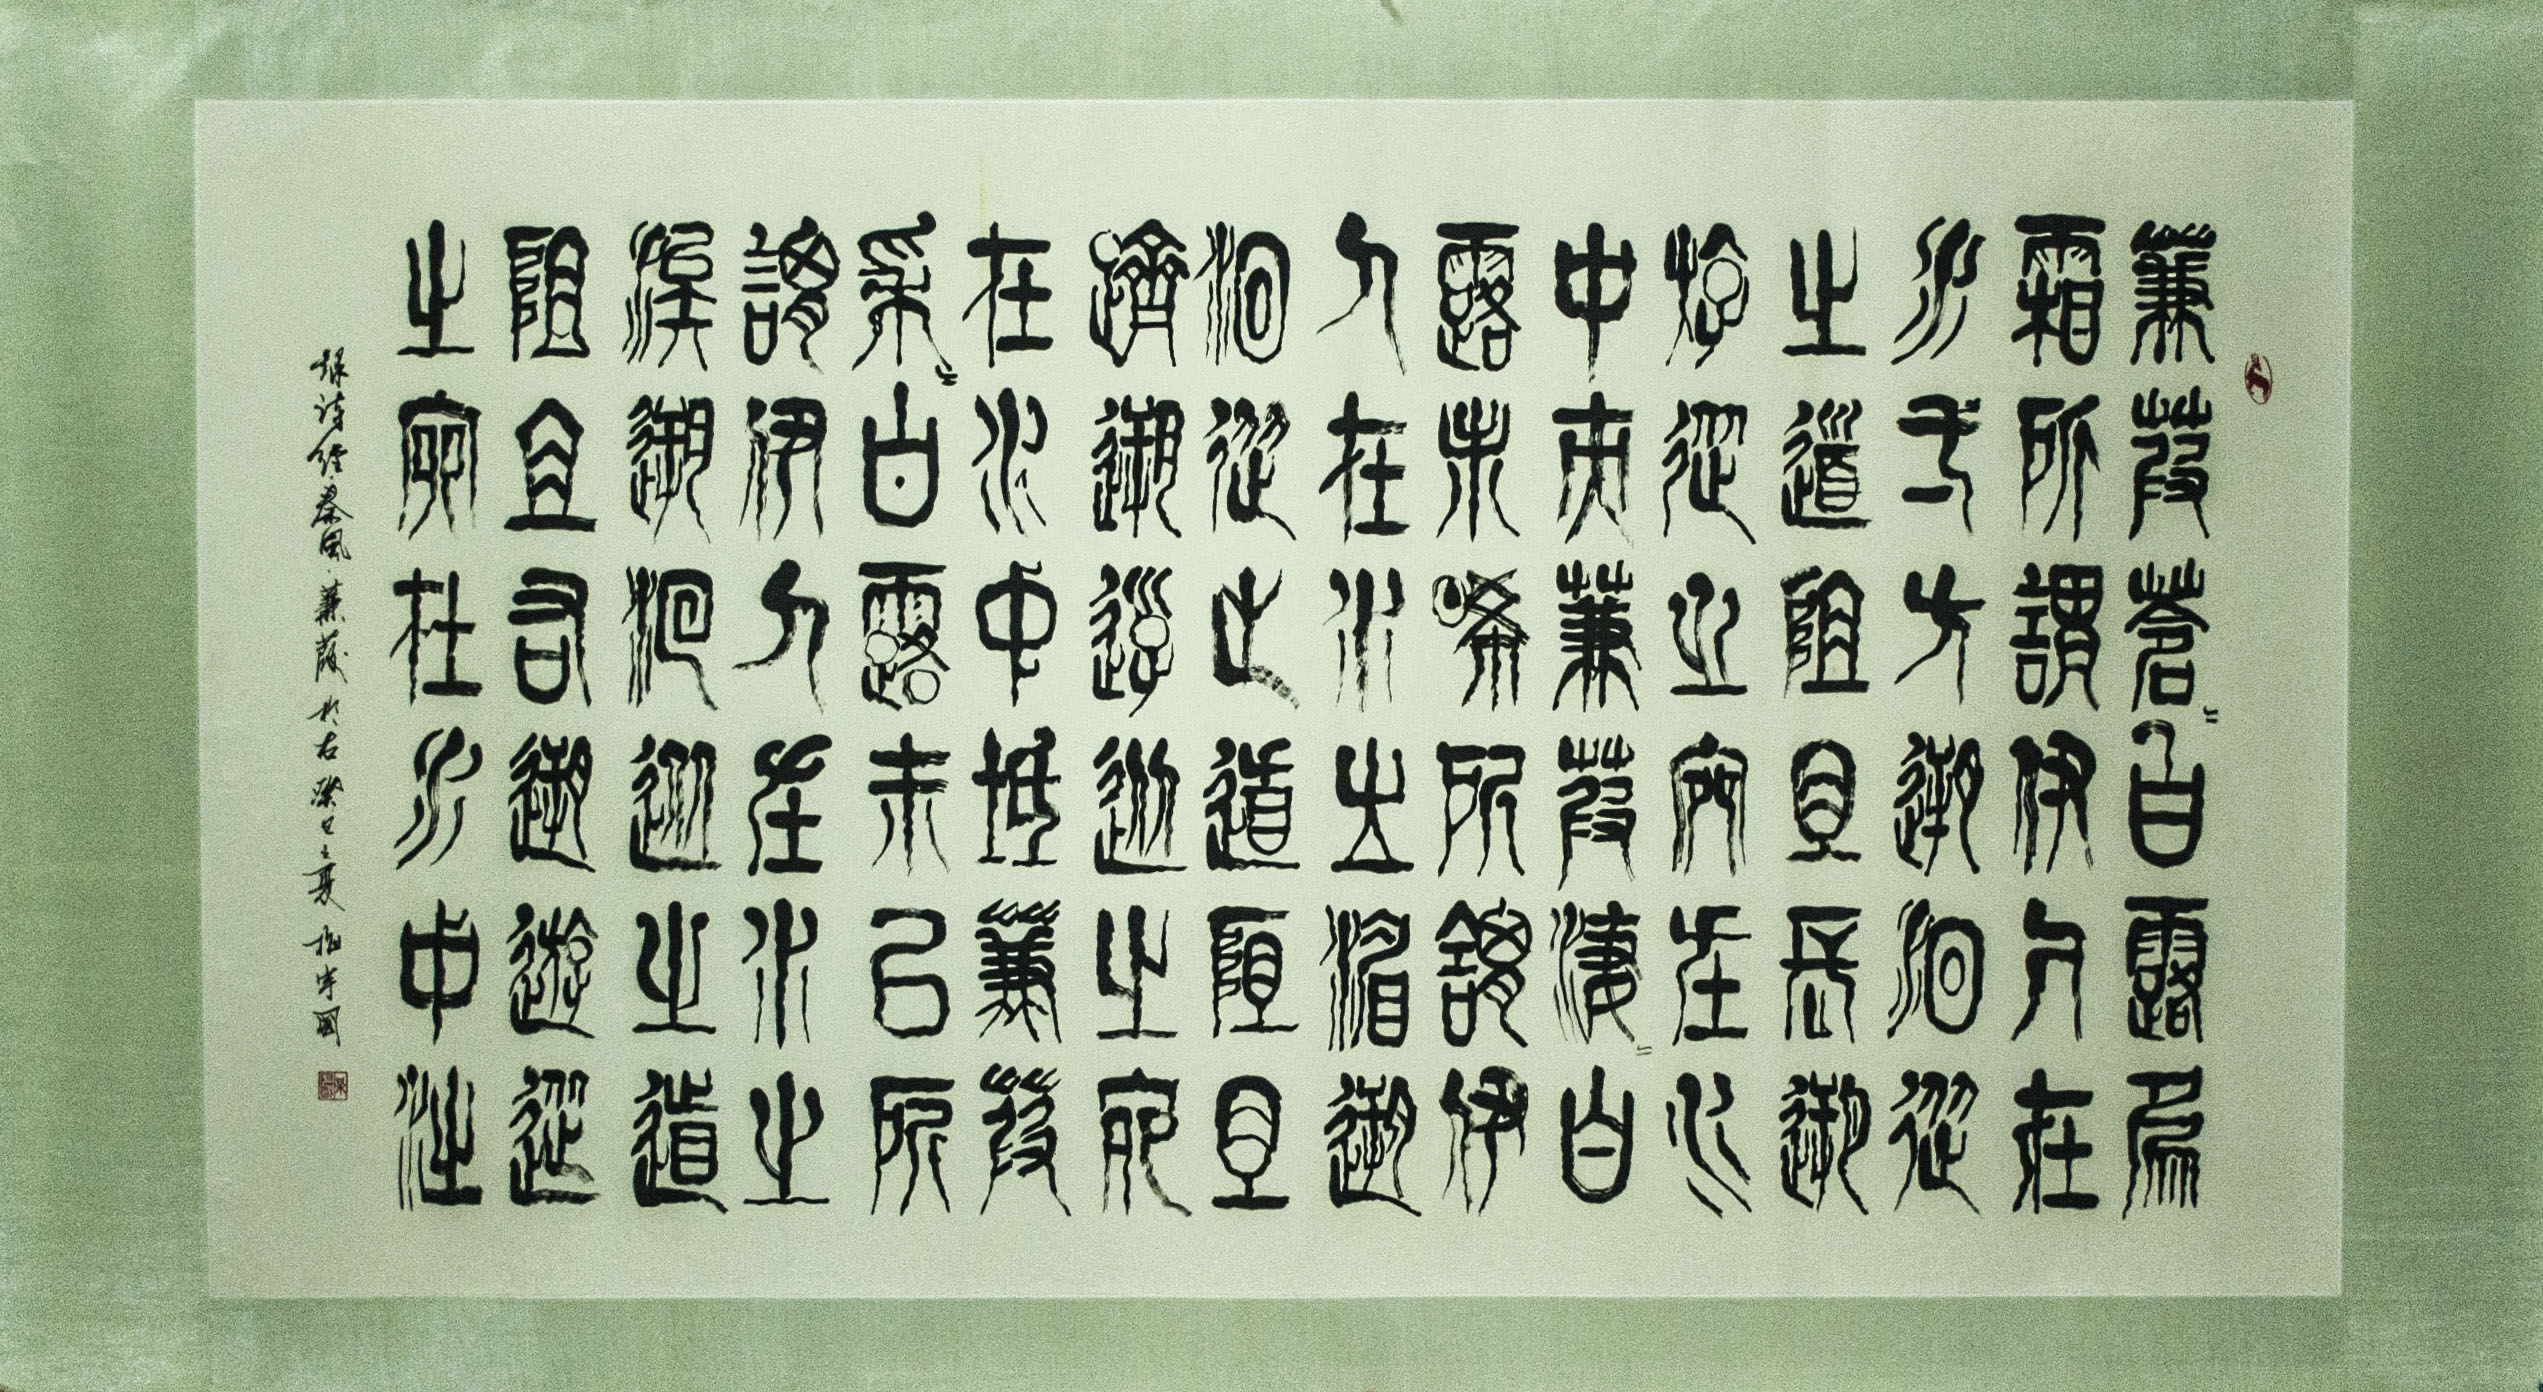 蒹葭蒼〻白露為
霜所謂伊人在
水弌方遡洄從
之道阻且長遡
游從之宛在水
中央蒹葭淒〻白
露未晞所謂伊
人在水之湄遡
洄從之道阻且
躋遡游從之宛
在水中坻蒹葭
采〻白露未已所
謂伊人在水之
涘遡洄從之道
阻且右遡游從
之宛在水中沚
録诗经·秦風·蒹葭於右癸巳之夏